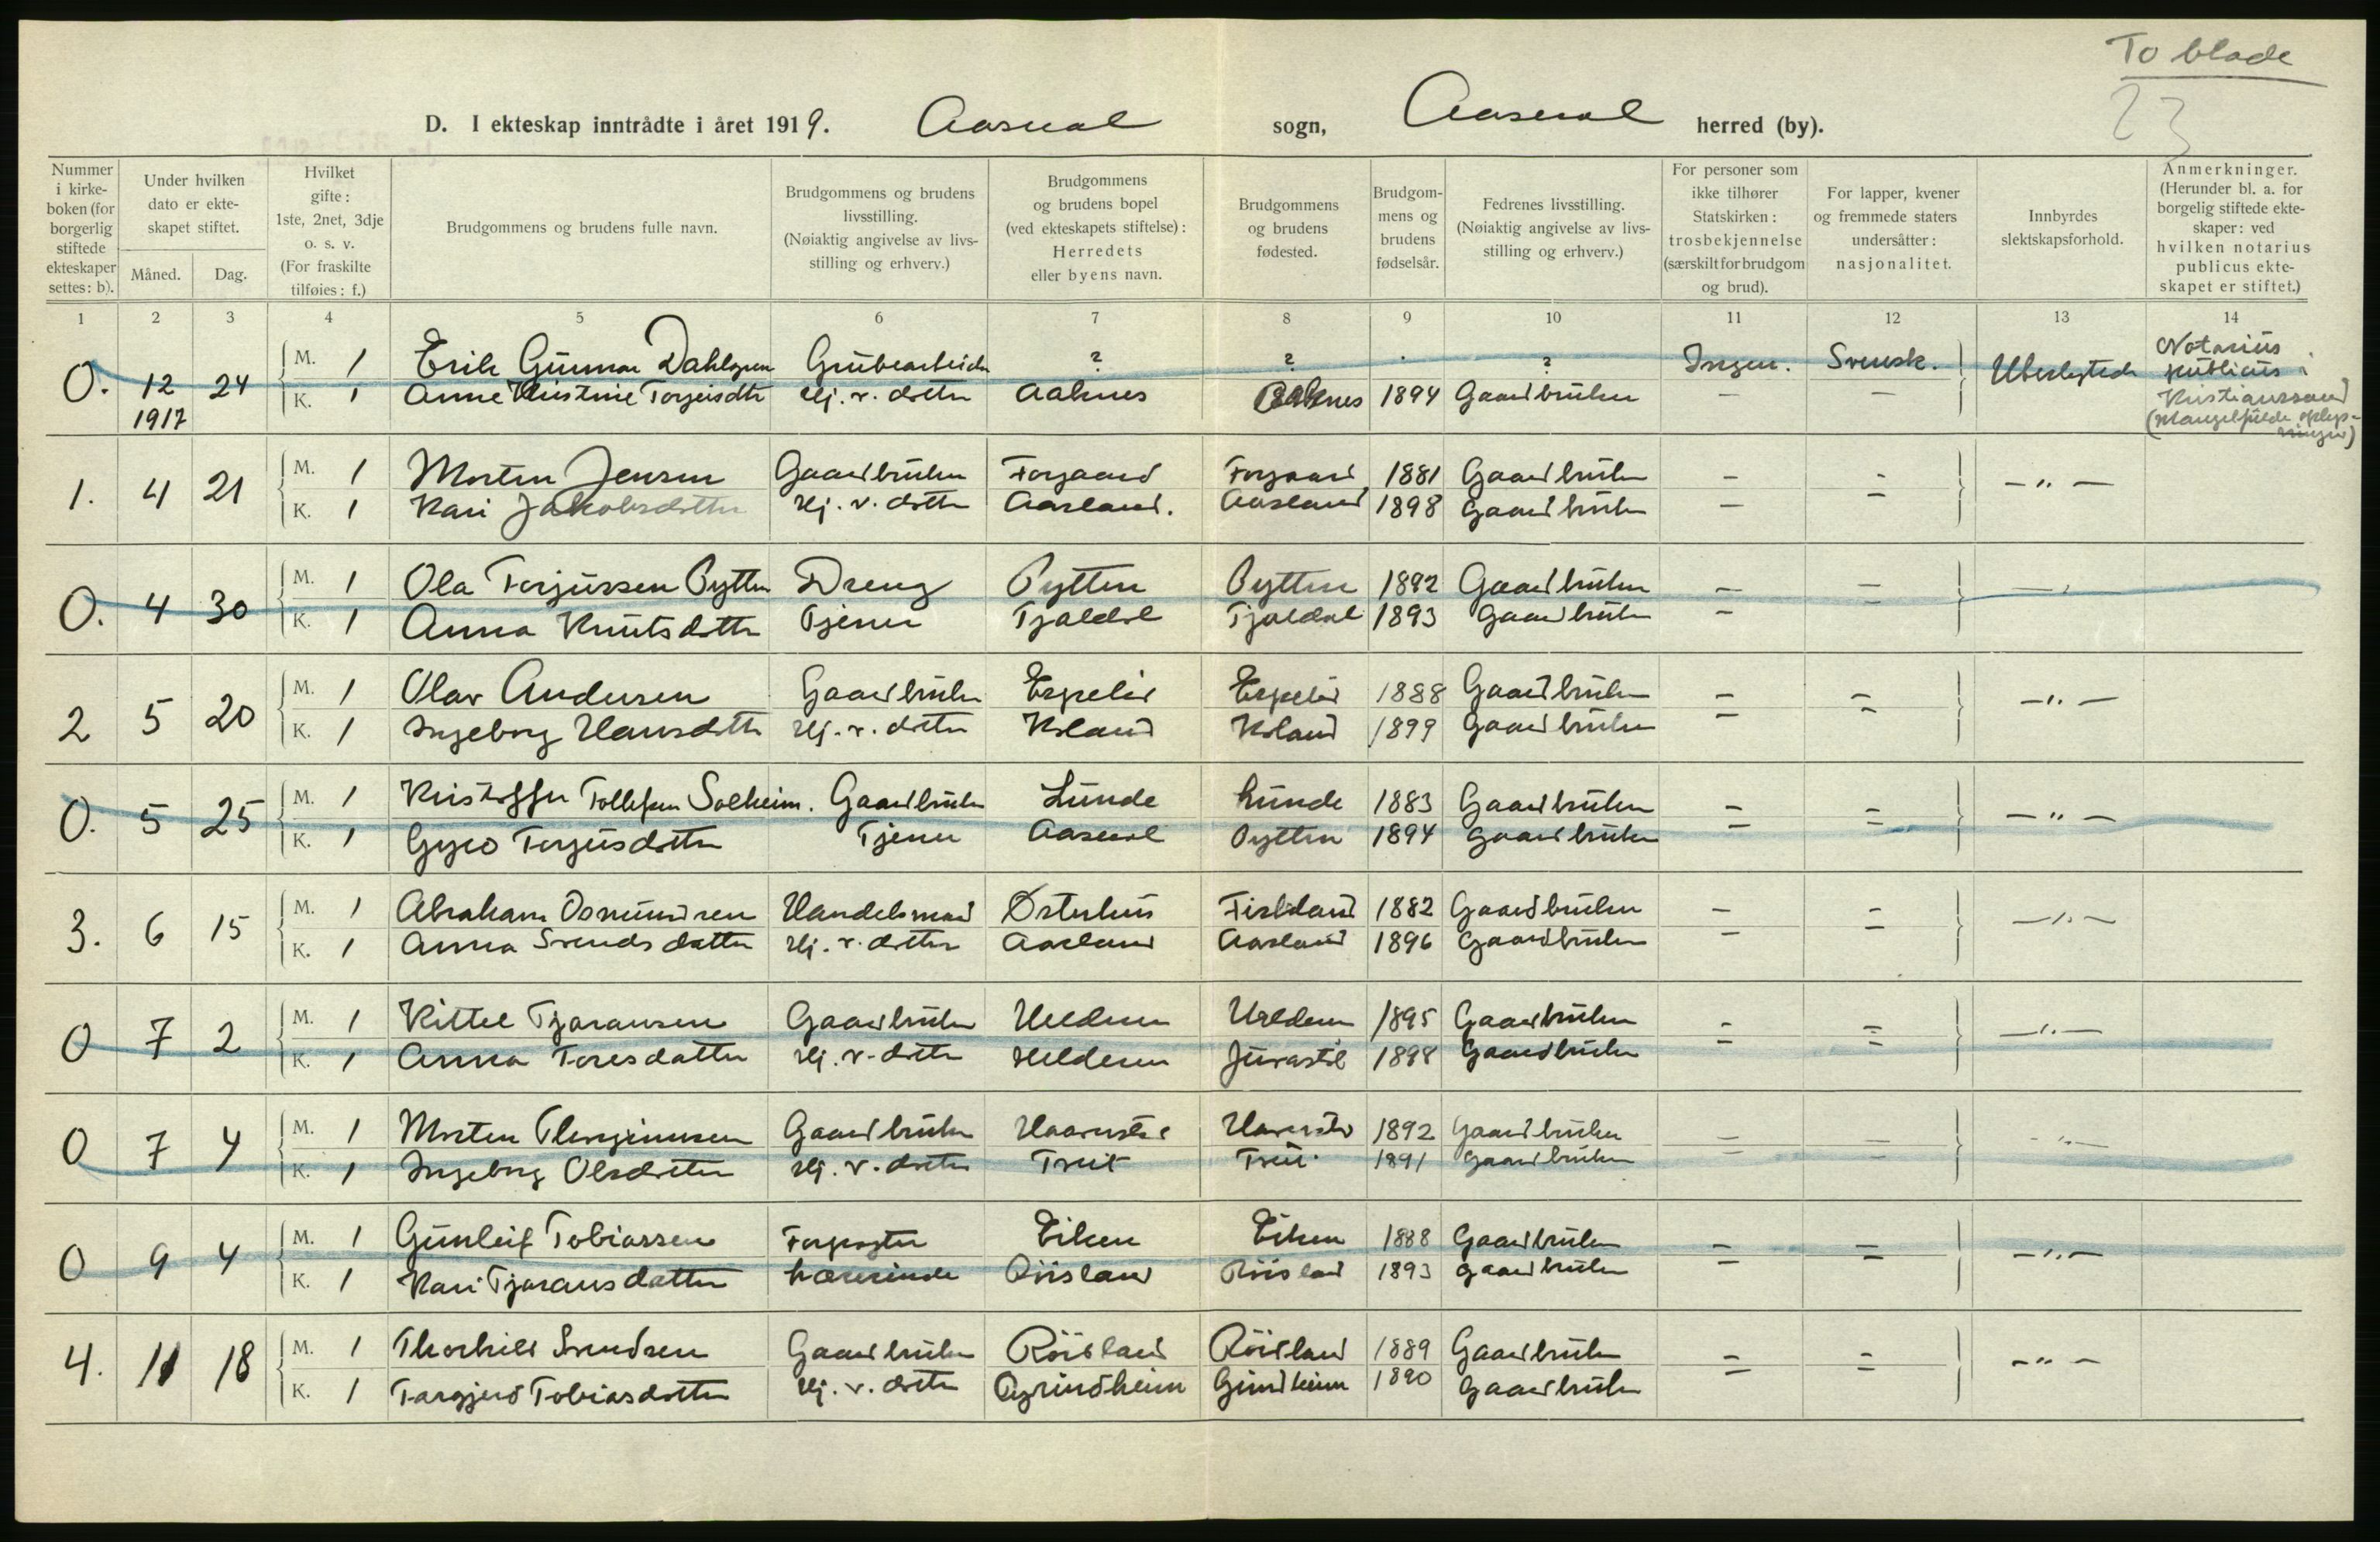 To blade
23
D. I ekteskap inntrådte i året 1919. Aaseral sogn, Aaseral herred (by).
Nummer i kirkeboken (for borgerlig stiftede ekteskaper settes: b).
Under hvilken dato er ekteskapet stiftet.
Måned. Dag.
Hvilket gifte: 1ste, 2net, 3dje o. s. v. (For fraskilte tilføies: f.)
Brudgommens og brudens fulle navn.
Brudgommens og brudens livsstilling. (Nøiaktig angivelse av livsstilling og erhverv.)
Brudgommens og brudens bopel (ved ekteskapets stiftelse): Herredets eller byens navn.
Brudgommens og brudens fødested.
Brudgommens og brudens fødselsår.
Fedrenes livsstilling. (Nøiaktig angivelse av livsstilling og erhverv.)
For personer som ikke tilhører Statskirken: trosbekjennelse (særskilt for brudgom og brud).
For lapper, kvener og fremmede staters undersåtter: nasjonalitet.
Innbyrdes slektskapsforhold.
Anmerkninger. (Herunder bl. a. for borgelig stiftede ekteskaper: ved hvilken notarius publicus ekteskapet er stiftet.)
1 2 3 4 5 6 7 8 9 10 11 12 13 14
O. 12 24 M. 1 Erik Gunnar Dahlgren Grubearbeider ? ? . ? Ingen. Svensk. Ubeslegtede Notarius publicus Kristianssand
1917 K. 1 Anne Kristine Torjeisdtr Hj. v. datter Aaknes Aaknes 1894 Gaardbruker — — (Mangelfulde oplysninger)
1. 4 21 M. 1 Morten Jensen Gaardbruker Forgaard Forgaard 1881 Gaardbruker - - — " —
K. 1 Kari Jakobsdatter Hj. v. datter Aasland. Aasland 1898 Gaardbruker — —
O. 4 30 M. 1 Ola Torjussen Pytten Dreng Pytten Pytten 1892 Gaardbruker — — — " —
K. 1 Anna Knutsdatter Tjener Tjaldal Tjaldal 1893 Gaardbruker — —
2 5 20 M. 1 Olav Andersen Gaardbruker Espelid Espelid 1888 Gaardbruker — — — " —
K. 1 Ingeborg Hansdatter Hj. v. datter Kxland Kxland 1899 Gaardbruker — —
O. 5 25 M. 1 Kristoffer Tollefsen Solheim. Gaardbruker Lunde Lunde 1883 Gaardbruker — — — " —
K. 1 Gyro Torjusdatter Tjener Aaseral Pytten 1894 Gaardbruker — —
3. 6 15 M. 1 Abraham Osmundsen Handelsmand Østerhus Fistdland 1882 Gaardbruker — — — " —
K. 1 Anna Svendsdatter Hj. v. datter Aasland Aasland 1896 Gaardbruker — —
O 7 2 M. 1 Kittel Tjaransen Gaardbruker Heldern Heldern 1895 Gaardbruker — — — " —
K. 1 Anna Toresdatter Hj. v. datter Heldern Juvastøl 1898 Gaardbruker — —
O 7 4 M. 1 Morten Thorgrimsen Gaardbruker 1892 Gaardbruker — — — " —
K. 1 Ingeborg Olsdatter Hj. v. datter 1891 Gaardbruker — —
O 9 4 M. 1 Gunleif Tobiassen Forpagter Eiken Eiken 1888 Gaardbruker — — — " —
K. 1 Kari Tjaransdatter Lærerinde Røisland Røisland 1893 Gaardbruker — —
4. 11 18 M. 1 Thorkild Svendsen Gaardbruker Røisland Røisland 1889 Gaardbruker — — — " —
K. 1 Targjerd Tobiasdatter Hj. v. datter Grindheim 1890 Gaardbruker — —